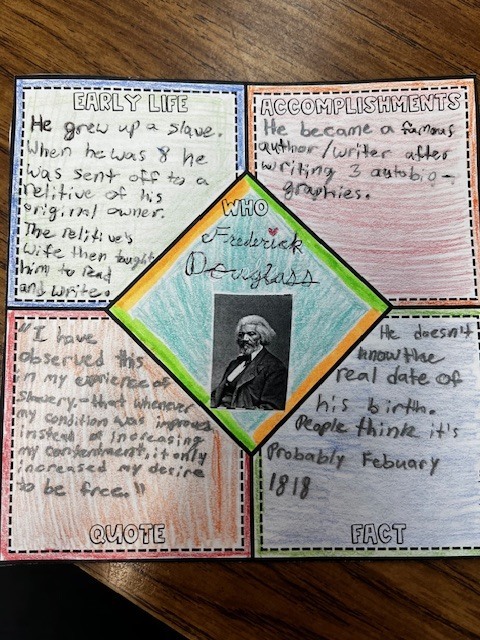 EARLY LIFE
He grew up a slave.
When he was 8 he
was sent off to a
relitive of his
original owner.
The relitive's
wife then taught
him to read
and write.
ACCOMPLISHMENTS
He became a famous
author/writer after
writing 3 autobio-
graphies.
WHO
Frederick
Douglass
"I have
observed this
in my exprience of
slavery,-that whenever
my condition was improved
instead of increasing
my contentment, it only
increased my desire
to be free."
QUOTE
He doesn't
know the
real date of
his birth.
People think it's
Probably Febuary
1818
FACT